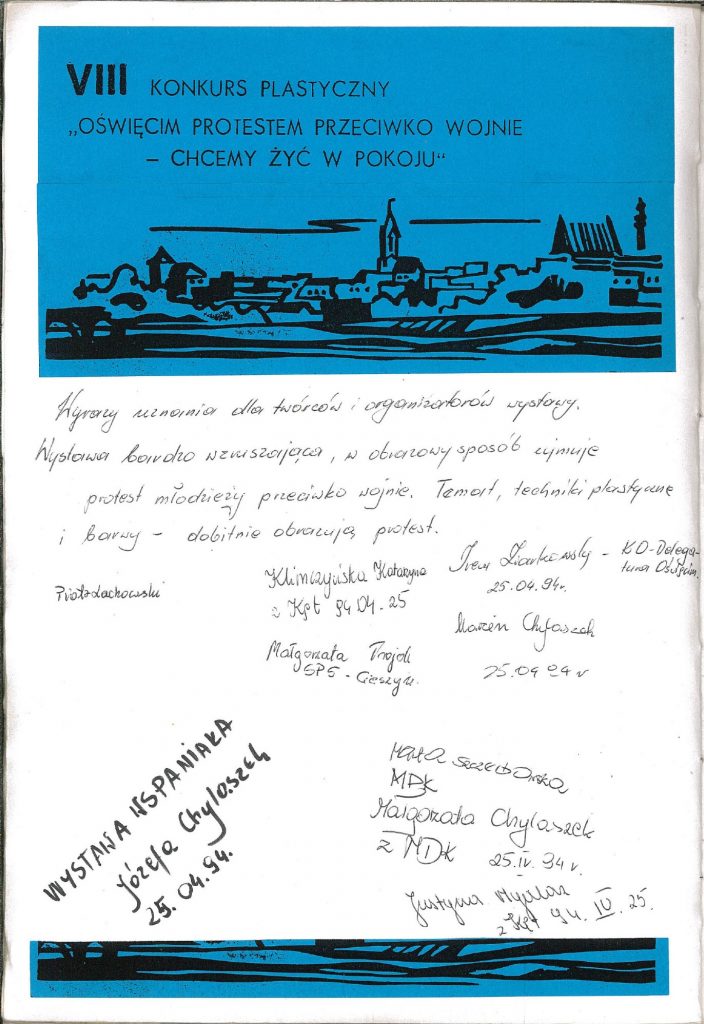 VIII KONKURS PLASTYCZNY
„OŚWIĘCIM PROTESTEM PRZECIWKO WOJNIE
– CHCEMY ŻYĆ W POKOJU“
Wyrazy uznania dla twórców i organizatorów wystawy.
Wystawa bardzo wzruszająca, w obrazowy sposób ujmuje
protest młodzieży przeciwko wojnie. Temat, techniki plastyczne
i barwy – dobitnie obrazują protest.
Piotr Lachowski
Klimczyńska Katarzyna
z Kęt 94.04.25
Małgorzata Trojok
SP5 - Cieszyn.
KO-Delega-
tura Oświęcim.
25.04.94r.
Marcin Chylaszek
25.04.94 r
WYSTAWA WSPANIAŁA
Józefa Chylaszek
25.04.94.
Marta
MDK
Małgorzata Chylaszek
z MDK 25.IV.94r.
Justyna
z Kęt 94.IV.25.